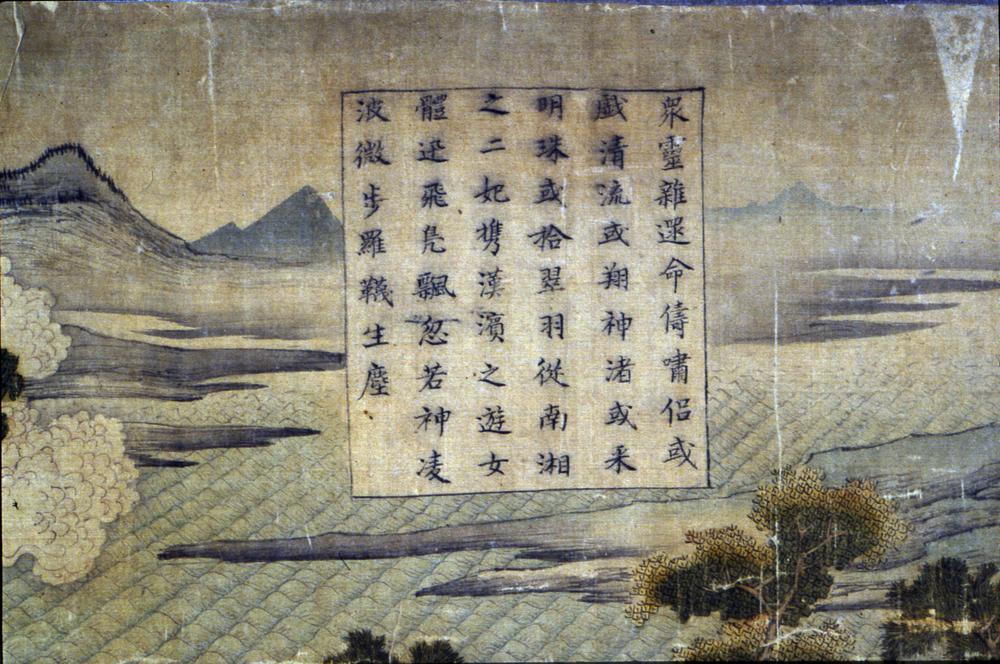 衆靈雜遝命儔嘯侣或
戲清流或翔神渚或采
明珠或拾翠羽從南湘
之二妃攜漢濱之遊女
體迅飛鳧飄忽若神凌
波微步羅韈生塵